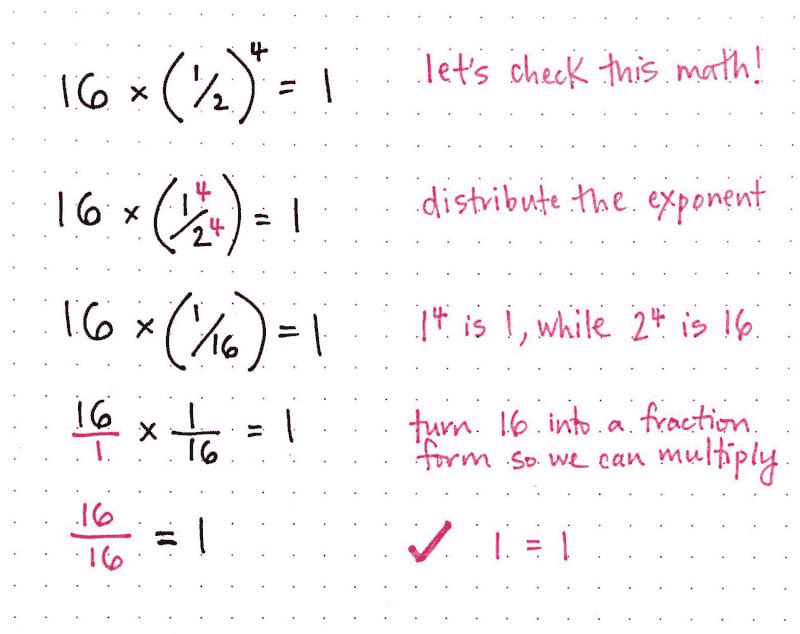 16 × (1/2)⁴ = 1 let's check this math!
16 × (1⁴/2⁴) = 1 distribute the exponent
16 × (1/16) = 1 1⁴ is 1, while 2⁴ is 16
16/1 × 1/16 = 1 turn 16 into a fraction
form so we can multiply
16/16 = 1 ✓ 1 = 1